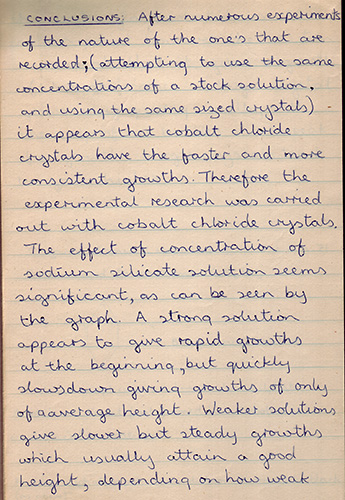 CONCLUSIONS: After numerous experiments
of the nature of the one's that are
recorded; (attempting to use the same
concentrations of a stock solution,
and using the same sized crystals)
it appears that cobalt chloride
crystals have the faster and more
consistent growths. Therefore the
experimental research was carried
out with cobalt chloride crystals.
The effect of concentration of
sodium silicate solution seems
significant, as can be seen by
the graph. A strong solution
appears to give rapid growths
at the beginning, but quickly
slowsdown giving growths of only
of aaverage height. Weaker solutions
give slower but steady growths
which usually attain a good
height, depending on how weak